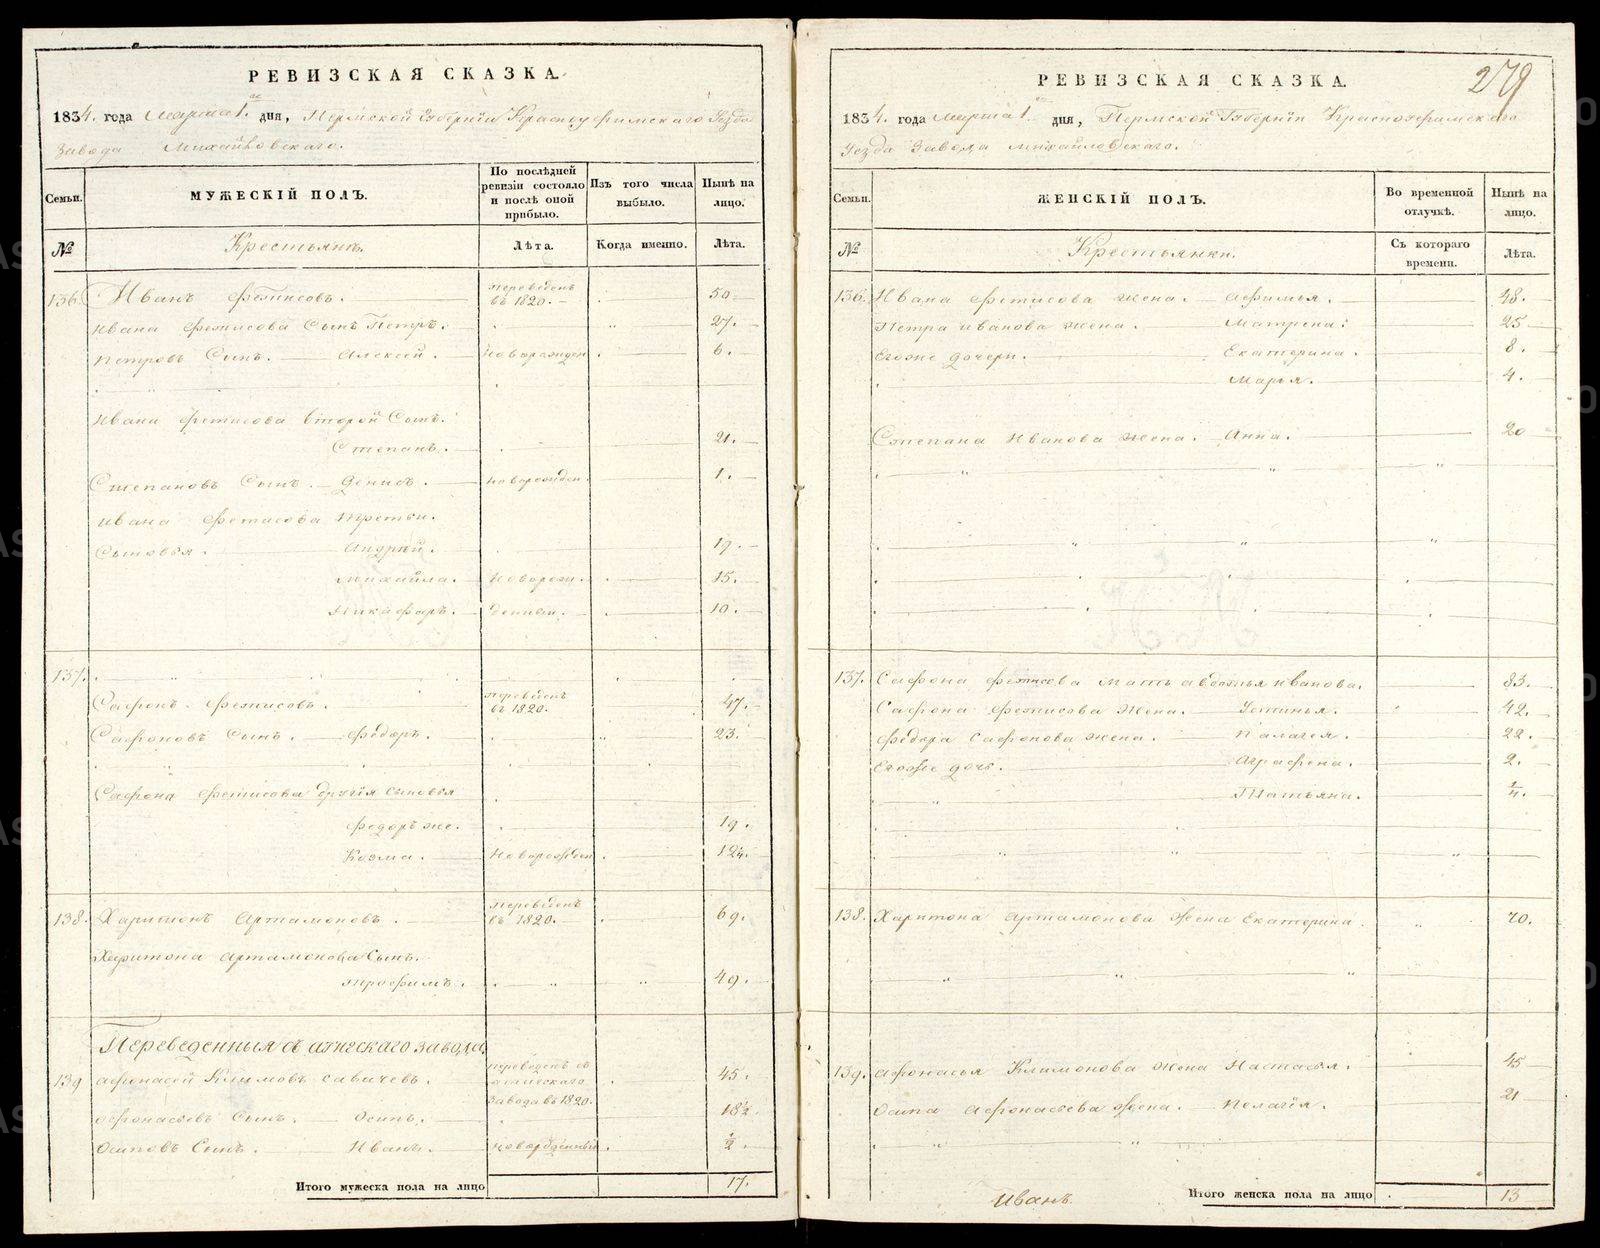 РЕВИЗСКАЯ СКАЗКА.
1834. года Марта 1. дня, Пермской Губерніи Красноуфимскаго Уезда
Завода Михайловскаго.
Семьи.
МУЖЕСКІЙ ПОЛЪ.
По послѣдней ревизіи состояло и послѣ оной прибыло.
Изъ того числа выбыло.
Нынѣ на лицо.
№
Крестьянъ.
Лѣта.
Когда именно.
Лѣта.
136. Иванъ Фетисовъ. переведенъ въ 1820. 50.
Ивана Фетисова Сынъ Петръ. 27.
Петровъ Сынъ. Алексей. Новорожден 6.
Ивана Фетисова второй Сынъ.
Степанъ. 21.
Степановъ Сынъ. Денисъ. новорожден. 1.
Ивана Фетисова третьи.
Сыновья. Андрей. 19.
Михайла. Новорож. 15.
Никафоръ. денныи. 10.
137.
Сафонъ Фетисовъ. переведенъ въ 1820. 47.
Сафоновъ Сынъ. Федоръ. 23.
Сафона Фетисова другія сыновья
Федоръ же. 19.
Козма. Новорожден 12½.
138. Харитонъ Артамоновъ. переведенъ въ 1820. 69.
Харитона Артамонова Сынъ.
Трофимъ. 49.
Переведенныя съ Атнескаго завода
139 Афонасей Климовъ Савичевъ. переведенъ съ Атнескаго Завода въ 1820. 45.
Афонасьевъ Сынъ. Осипъ. 18½.
Осиповъ Сынъ. Иванъ. новорожденный. ½.
Итого мужеска пола на лицо 17.
279
РЕВИЗСКАЯ СКАЗКА.
1834. года Марта 1. дня, Пермской Губерніи Красноуфимскаго
Уезда Завода Михайловскаго.
Семьи.
ЖЕНСКІЙ ПОЛЪ.
Во временной отлучкѣ.
Нынѣ на лицо.
№
Крестьянки.
Съ котораго времени.
Лѣта.
136. Ивана Фетисова жена. Афимья. 48.
Петра Иванова жена. Матрена. 25
Егоже дочери. Екатерина. 8.
Марья. 4.
Степана Иванова жена. Анна. 20
137. Сафона Фетисова мать Авдотья Иванова. 83.
Сафона Фетисова Жена. Устинья. 42.
Федора Сафонова жена. Палагея. 22.
Егоже дочь. Аграфена. 2.
Татьяна. ¼.
138. Харитона Артамонова Жена Екатерина. 70.
139. Афонасья Климонова жена Настасья. 45
Осипа Афонасьева Жена. Пелагія. 21
Итого женска пола на лицо 13
Иванъ.